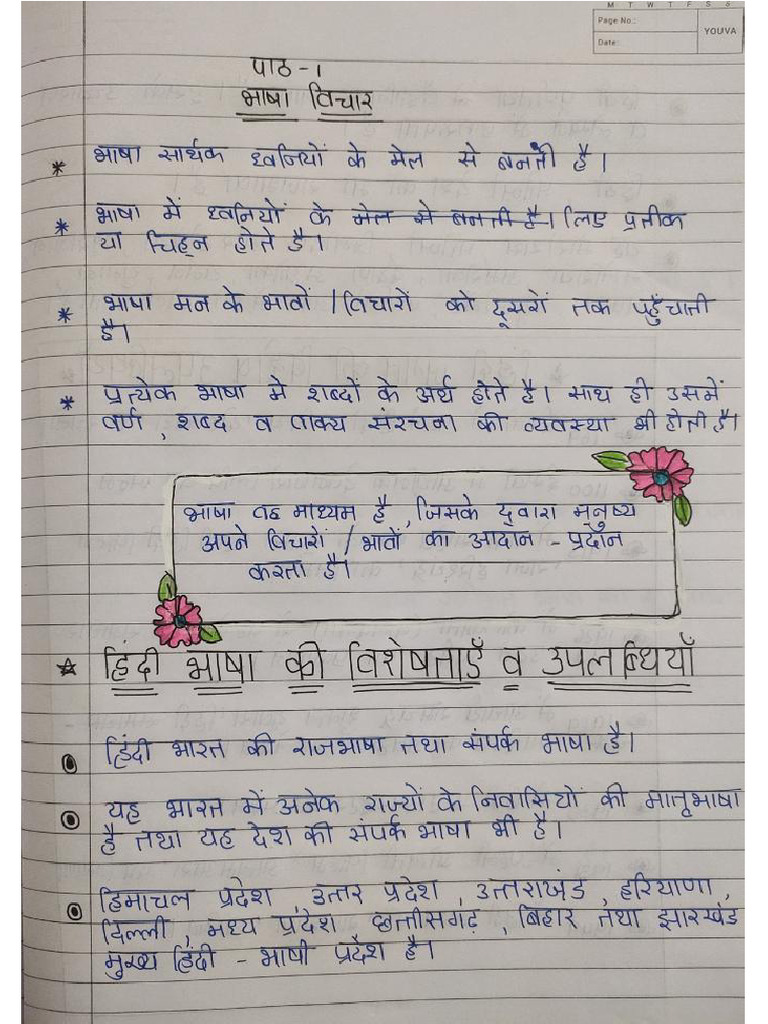 M T W T F S S
Page No.:
Date:
YOUVA
पाठ - 1
भाषा विचार
* भाषा सार्थक ध्वनियों के मेल से बनती है।
* भाषा में ध्वनियों के मेल से बनती है। लिए प्रतीक
या चिह्न होते है।
* भाषा मन के भावों / विचारों को दूसरों तक पहुँचाती
है।
* प्रत्येक भाषा मे शब्दों के अर्थ होते है। साथ ही उसमें
वर्ण , शब्द व वाक्य संरचना की व्यवस्था भी होती है।
भाषा वह माध्यम है , जिसके द्वारा मनुष्य
अपने विचारों / भावों का आदान - प्रदान
करता है।
हिंदी भाषा की विशेषताएँ व उपलब्धियाँ
हिंदी भारत की राजभाषा तथा संपर्क भाषा है।
यह भारत में अनेक राज्यों के निवासियों की मातृभाषा
है तथा यह देश की संपर्क भाषा भी है।
हिमाचल प्रदेश , उत्तर प्रदेश , उत्तराखंड , हरियाणा ,
दिल्ली , मध्य प्रदेश छत्तीसगढ़ , बिहार तथा झारखंड
मुख्य हिंदी - भाषी प्रदेश है।